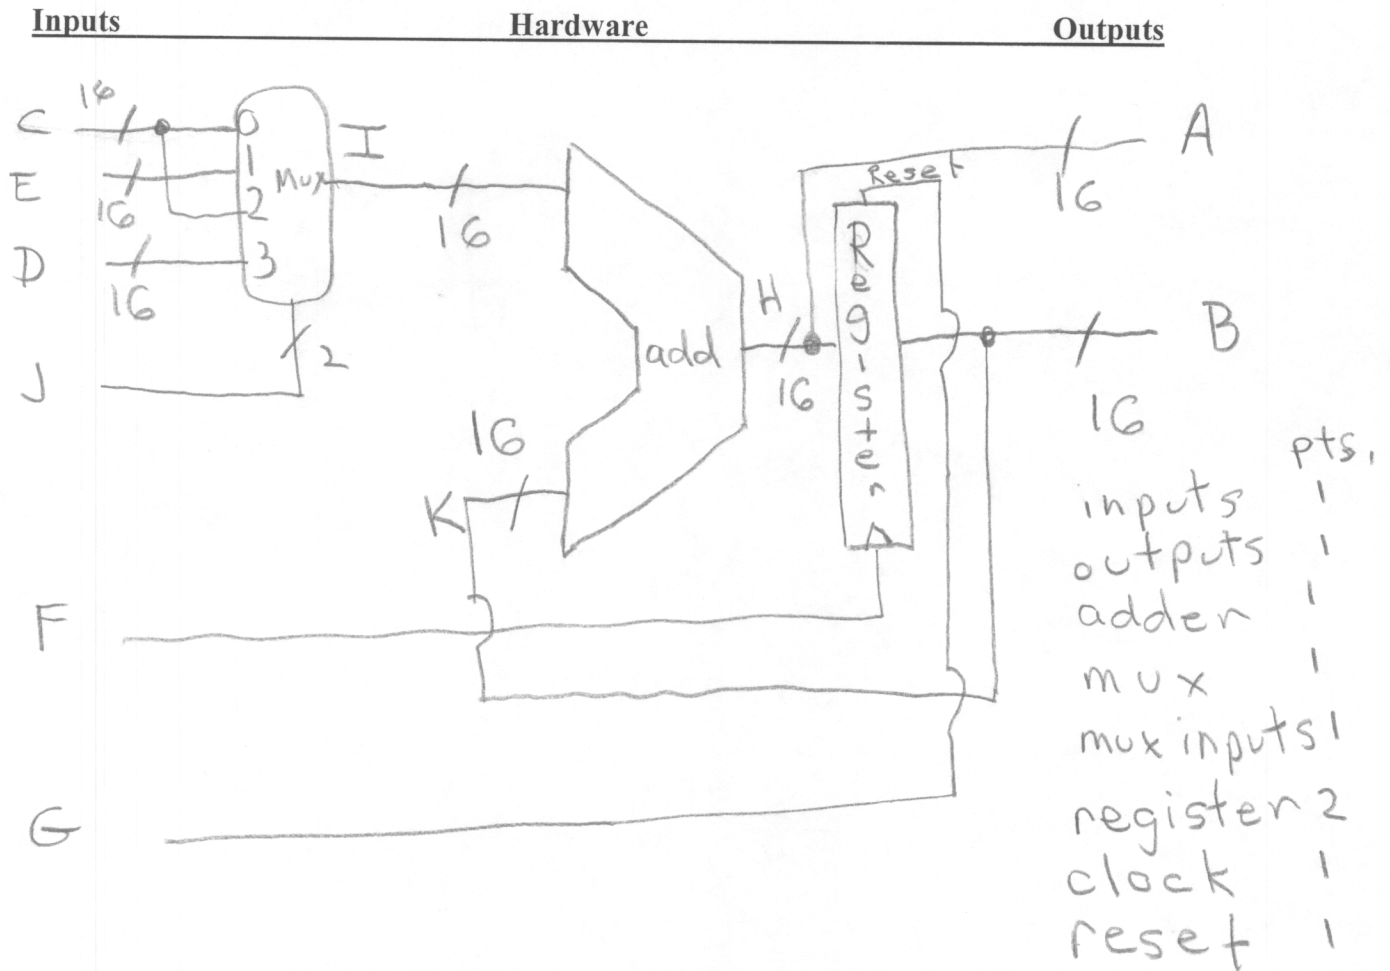 Inputs Hardware Outputs
C 16 0 I A
E 16 1 Mux 16 Reset 16
2
D 16 3
J 2
add H 16 Register B 16
K 16
F
G
pts.
inputs 1
outputs 1
adder 1
mux 1
mux inputs 1
register 2
clock 1
reset 1